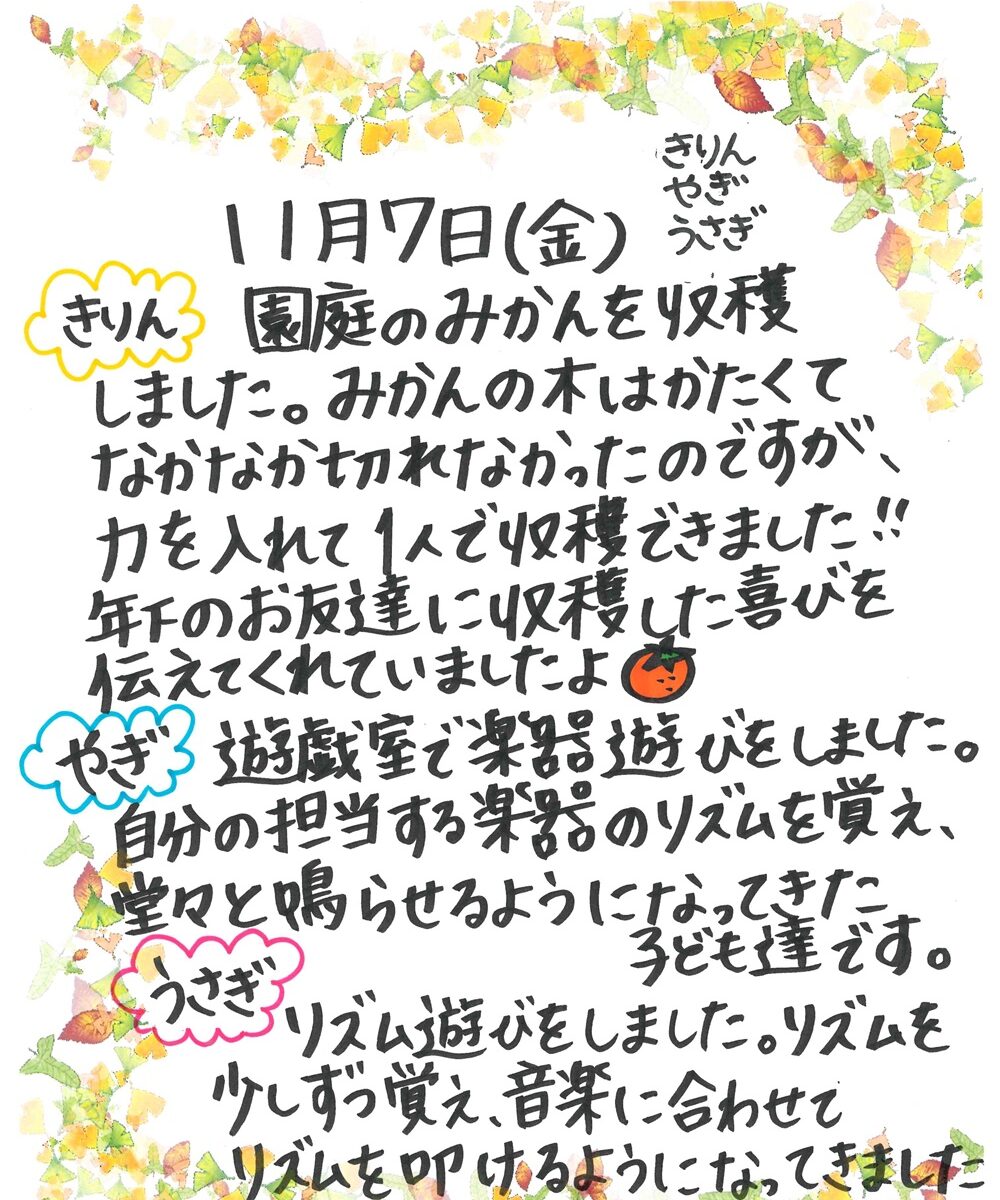 きりん
やぎ
うさぎ
11月7日(金)
きりん 園庭のみかんを収穫
しました。みかんの木はかたくて
なかなか切れなかったのですが、
力を入れて1人で収穫できました!!
年下のお友達に収穫した喜びを
伝えてくれていましたよ
やぎ 遊戯室で楽器遊びをしました。
自分の担当する楽器のリズムを覚え、
堂々と鳴らせるようになってきた
子ども達です。
うさぎ リズム遊びをしました。リズムを
少しずつ覚え、音楽に合わせて
リズムを叩けるようになってきました